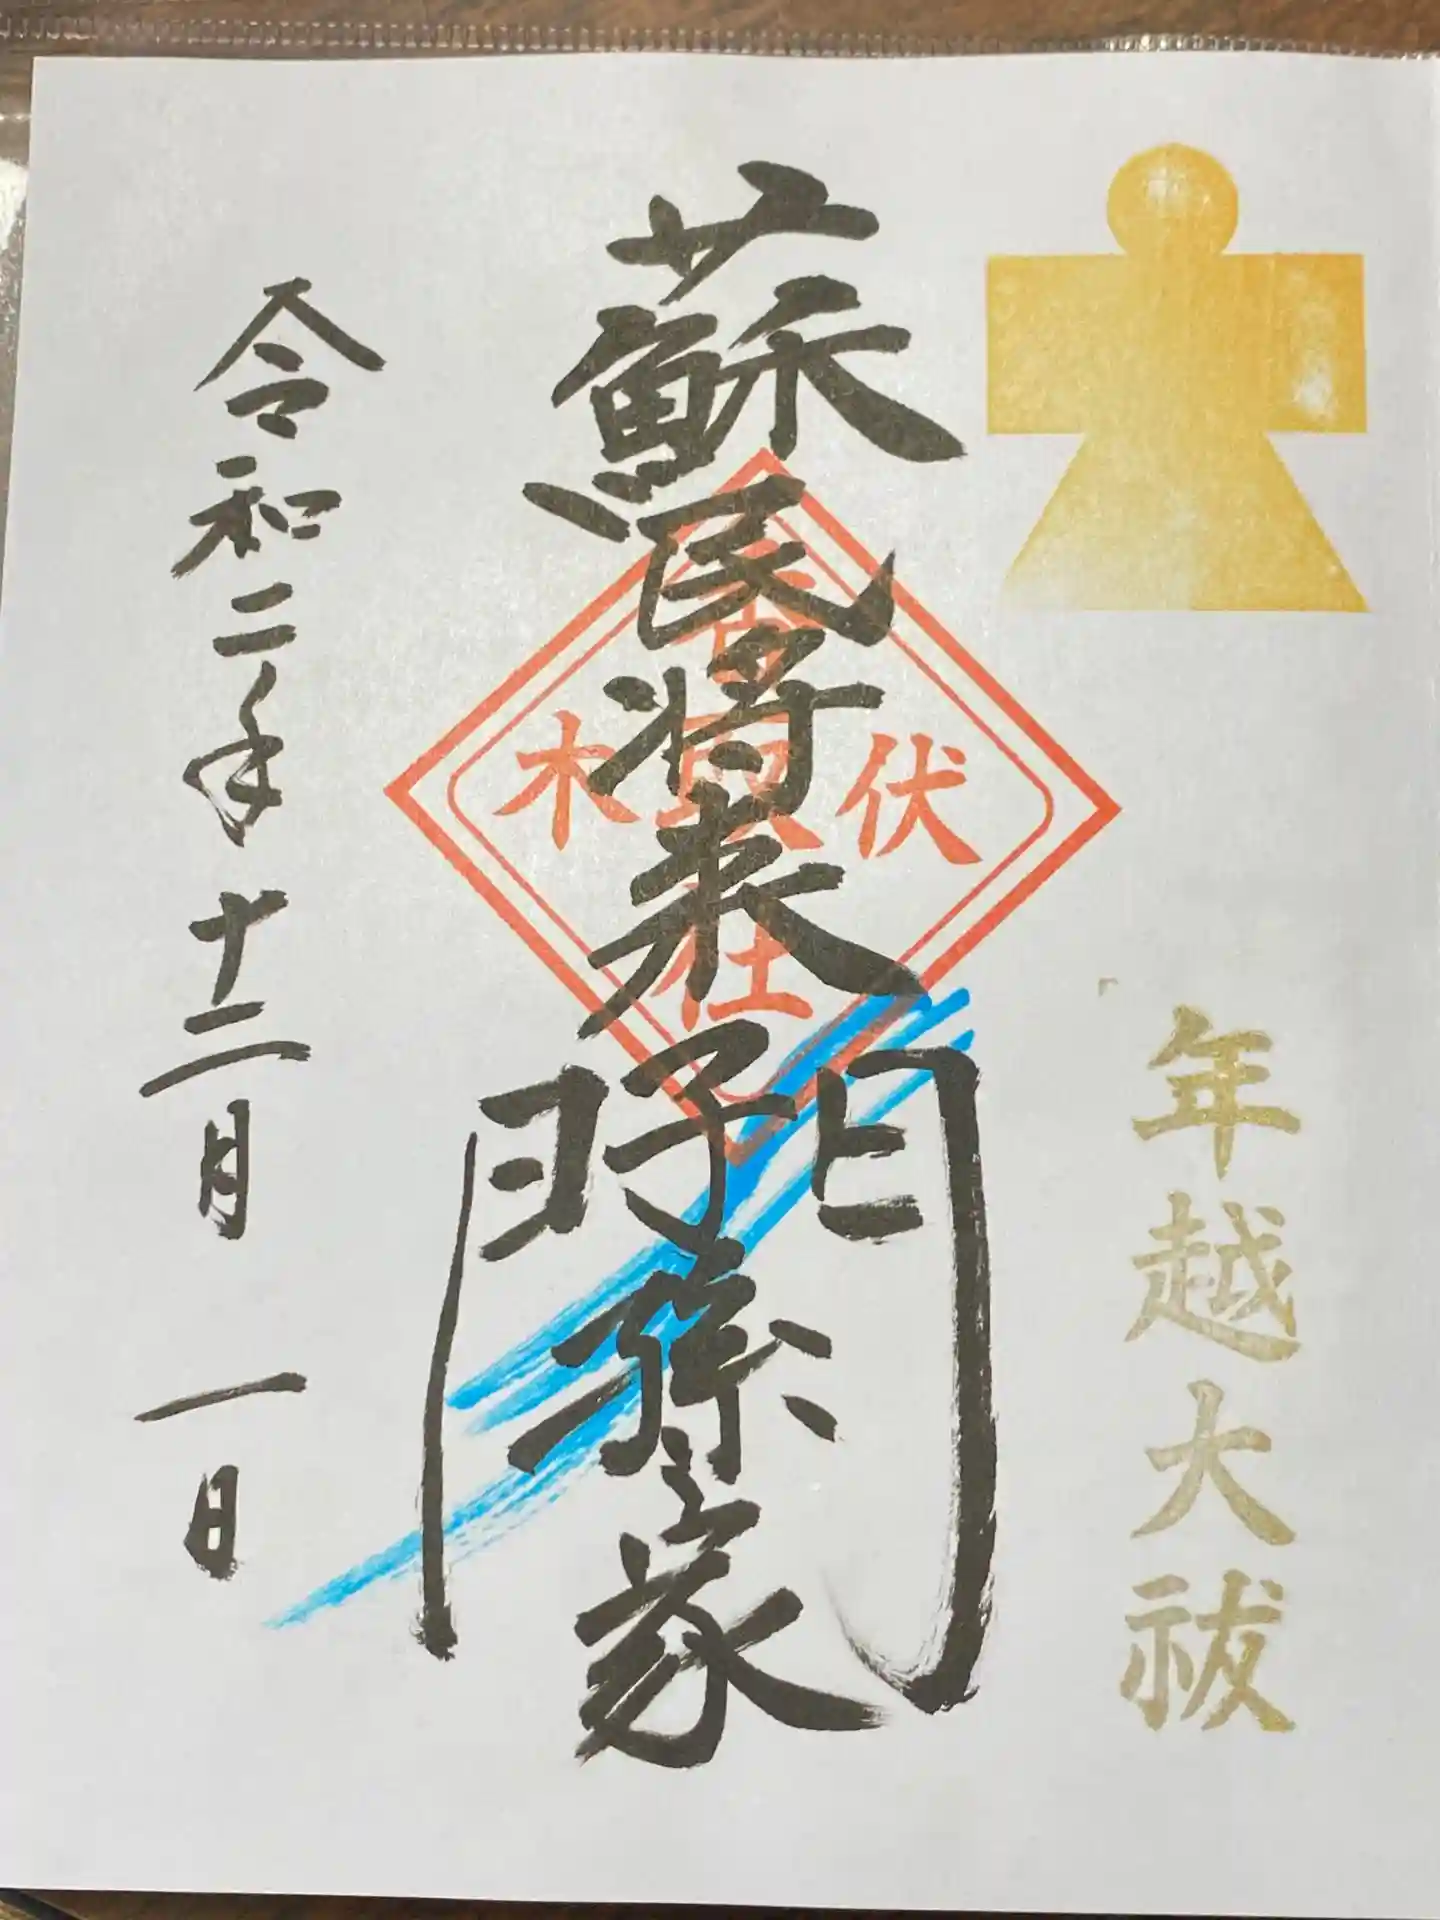 年越大祓
蘇民将来子孫家門
伏木香取社
令和二年十二月一日